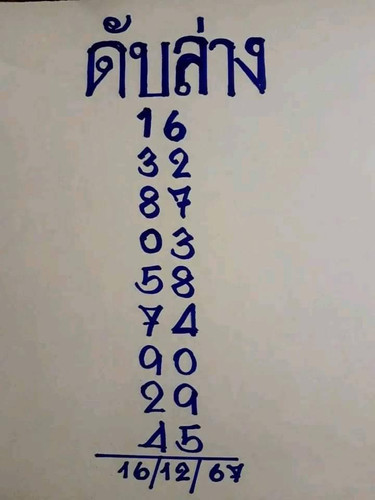 ดับล่าง
16
32
87
03
58
74
90
29
45
16/12/67